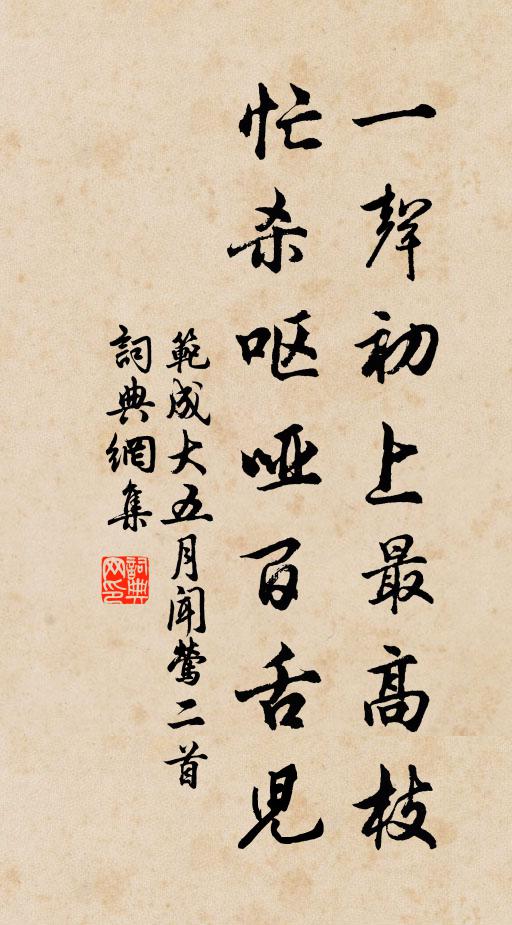 一聲初上最高枝
忙杀呕哑百舌児
範成大五月聞鶯二首
詞典網集
詞典网印